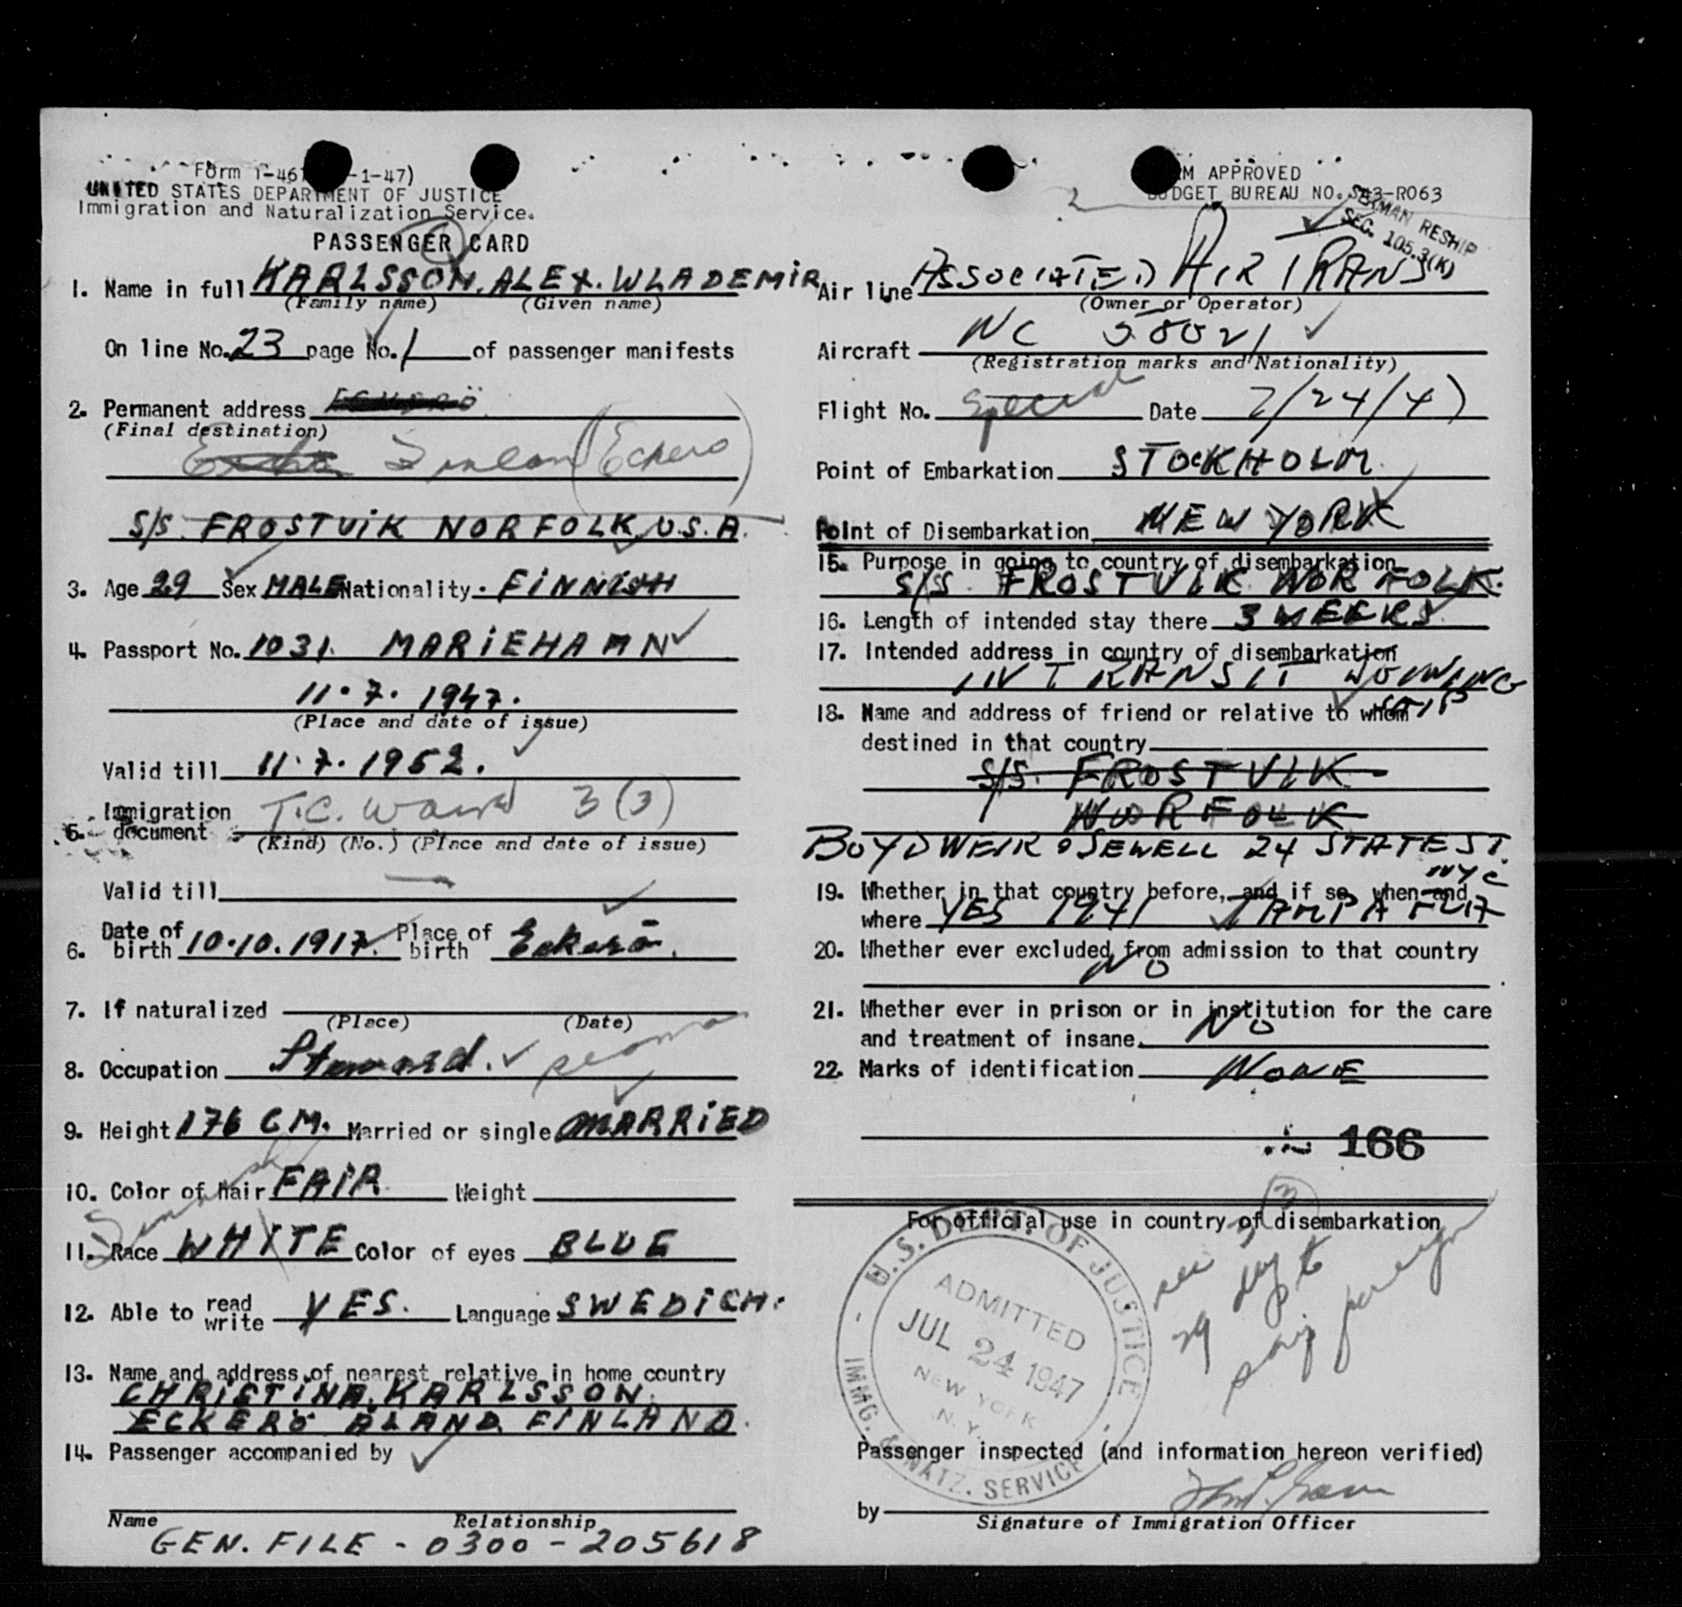 Form I-46 -1-47)
UNITED STATES DEPARTMENT OF JUSTICE
Immigration and Naturalization Service.
PASSENGER CARD
1. Name in full KARLSSON, ALEX. WLADEMIR
(Family name) (Given name)
On line No. 23 page No. 1 of passenger manifests
2. Permanent address
(Final destination)
Finland (Eckero)
S/S FROSTViK NORFOLK U.S.A.
3. Age 29 Sex MALE Nationality. FiNNiSH
4. Passport No. 1031. MARiEHAMN
11.7.1947.
(Place and date of issue)
Valid till 11.7.1952.
5. Immigration document T.C. 3(3)
(Kind) (No.) (Place and date of issue)
Valid till —
6. Date of birth 10.10.1917. Place of birth Eckerö.
7. If naturalized
(Place) (Date)
8. Occupation Steward. seaman
9. Height 176 CM. Married or single MARRiED
10. Color of Hair FAiR Weight
Finnish
11. Race WHITE Color of eyes BLUE
12. Able to read write YES. Language SWEDiCH.
13. Name and address of nearest relative in home country
CHRISTiNA. KARLSSON.
ECKERÖ ÅLAND. FiNLAND.
14. Passenger accompanied by
Name Relationship
GEN. FILE - 0300 - 205618
FORM APPROVED
BUDGET BUREAU NO. 43-R063
SEAMAN RESHIP
SEC. 105.3(K)
Air line ASSOCIATED AIR TRANS
(Owner or Operator)
Aircraft NC 58021
(Registration marks and Nationality)
Flight No. Special Date 7/24/47
Point of Embarkation STOCKHOLM.
Point of Disembarkation NEW YORK
15. Purpose in going to country of disembarkation
S/S. FROSTVIK NORFOLK.
16. Length of intended stay there 3 WEEKS
17. Intended address in country of disembarkation
IN TRANSIT JOINING
SHIP
18. Name and address of friend or relative to whom
destined in that country
S/S. FROSTVIK
NORFOLK
BOYD WEIR & SEWELL 24 STATE ST.
NYC
19. Whether in that country before, and if so, when and
where YES 1941 TAMPA FLA
20. Whether ever excluded from admission to that country
NO
21. Whether ever in prison or in institution for the care
and treatment of insane. NO
22. Marks of identification NONE
166
For official use in country of disembarkation
U.S. DEPT. OF JUSTICE
ADMITTED
JUL 24 1947
NEW YORK
N.Y.
IMMG. & NATZ. SERVICE
(3)
29 day
foreign
Passenger inspected (and information hereon verified)
by
Signature of Immigration Officer